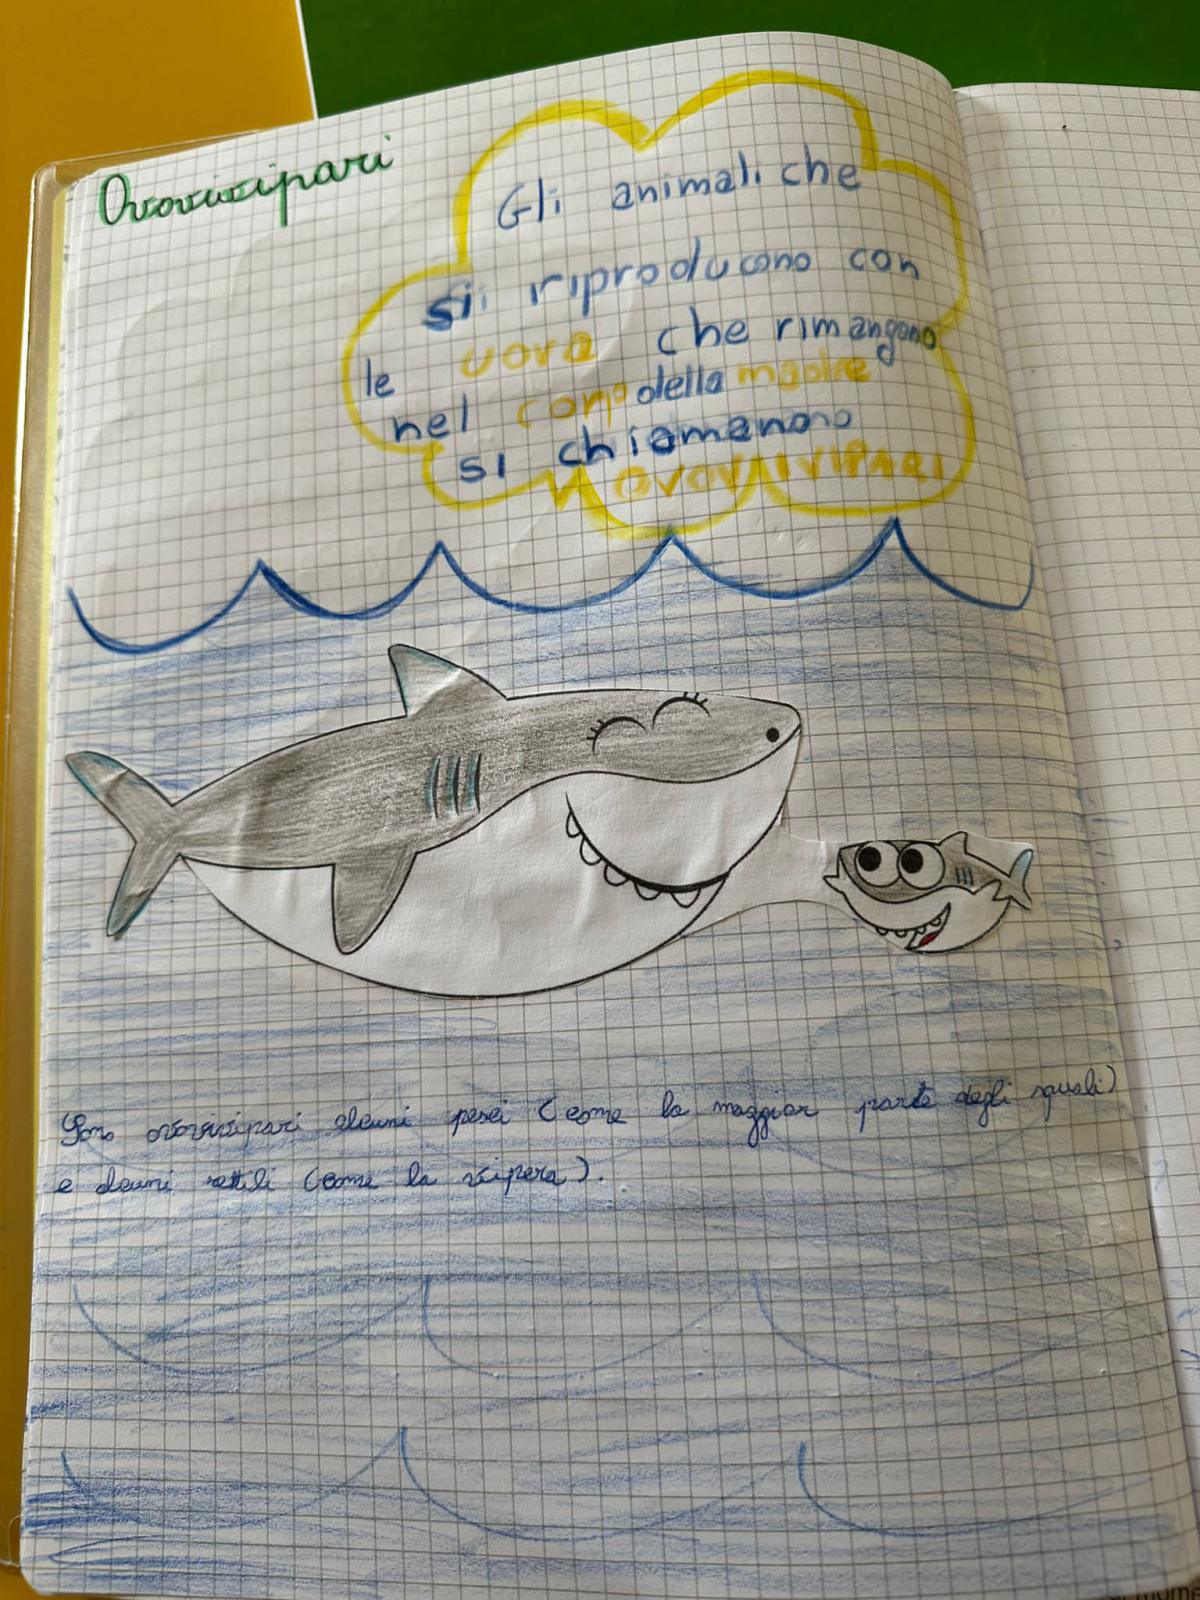 Ovovivipari
Gli animali che
si riproducono con
le uova che rimangono
nel corpo della madre
si chiamano
OVOVIVIPARI
Sono ovovivipari alcuni pesci (come la maggior parte degli squali)
e alcuni rettili (come la vipera).